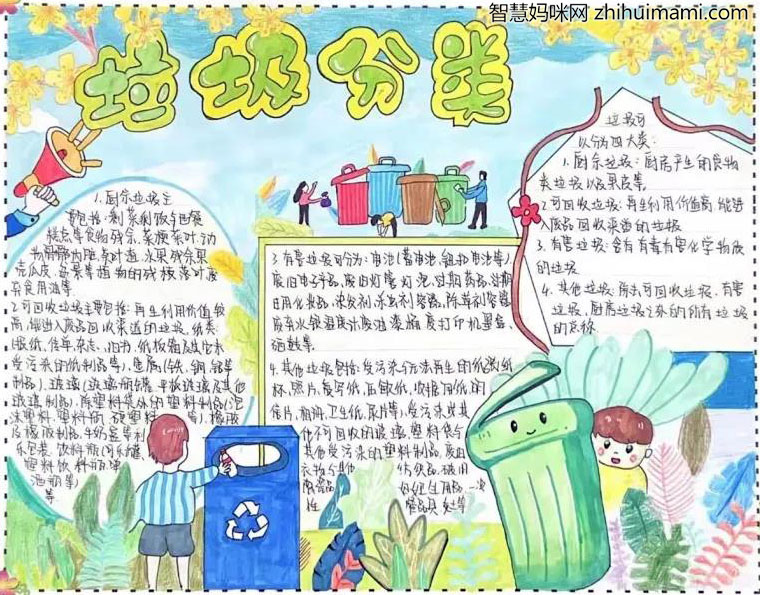 智慧妈咪网 zhihuimami.com
垃圾分类
1.厨余垃圾主
要包括:剩菜剩饭与西餐
糕点等食物残余、菜梗菜叶、动
物骨骼内脏、茶叶渣、水果残余果
壳瓜皮、盆景等植物的残枝落叶废
弃食用油等
2.可回收垃圾主要包括:再生利用价值较
高,能进入废品回收渠道的垃圾,纸类
(报纸、传单、杂志、旧书、纸板箱及其它未
受污染的纸制品等)、金属(铁、铜、铝等
制品)、玻璃(玻璃瓶罐、平板玻璃及其他
玻璃制品)、除塑料袋外的塑料制品(泡
沫塑料、塑料瓶、硬塑料等)、橡胶
及橡胶制品、牛奶盒等利
乐包装、饮料瓶(可乐罐、
塑料饮料瓶、啤
酒瓶等)
等
3.有害垃圾可分为:电池(蓄电池、纽扣电池等)
废旧电子产品,废旧灯管灯泡、过期药品、过期
日用化妆品、染发剂、杀虫剂容器、除草剂容器
废弃水银温度计、废油漆桶、废打印机墨盒、
硒鼓等
4.其他垃圾包括:受污染与无法再生的纸张(纸
杯、照片、复写纸、压敏纸、收据用纸、明
信片、相册、卫生纸、尿片等)、受污染或其
他不可回收的玻璃、塑料袋与
其他受污染的塑料制品、废旧
衣物与其他
品、破旧
陶瓷品
妇女卫生用品、一次
性
等
垃圾可
以分为四大类:
1.厨余垃圾:厨房产生的食物
类垃圾以及果皮等
2.可回收垃圾:再生利用价值高,能进
入废品回收渠道的垃圾
3.有害垃圾:含有有毒有害化学物质
的垃圾
4.其他垃圾:除去可回收垃圾、有害
垃圾、厨房垃圾之外的所有垃圾
的总称